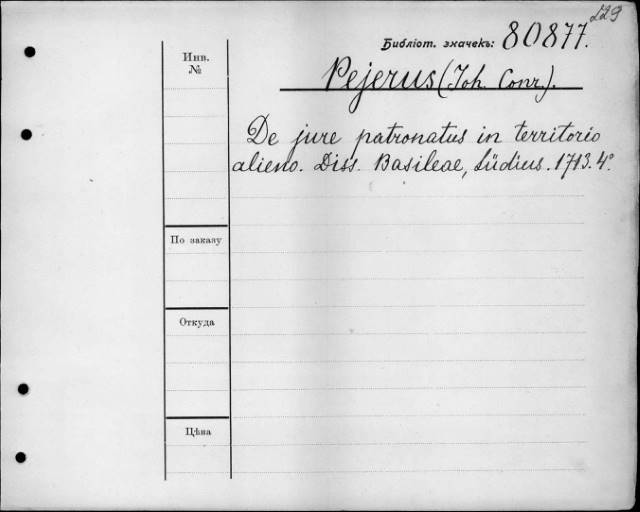 229
Библіот. значекъ: 80877.
Инв.
№
Pejerus (Joh. Conr.).
De jure patronatus in territorio
alieno. Diss. Basileae, Lüdius. 1713. 4°
По заказу
Откуда
Цѣна